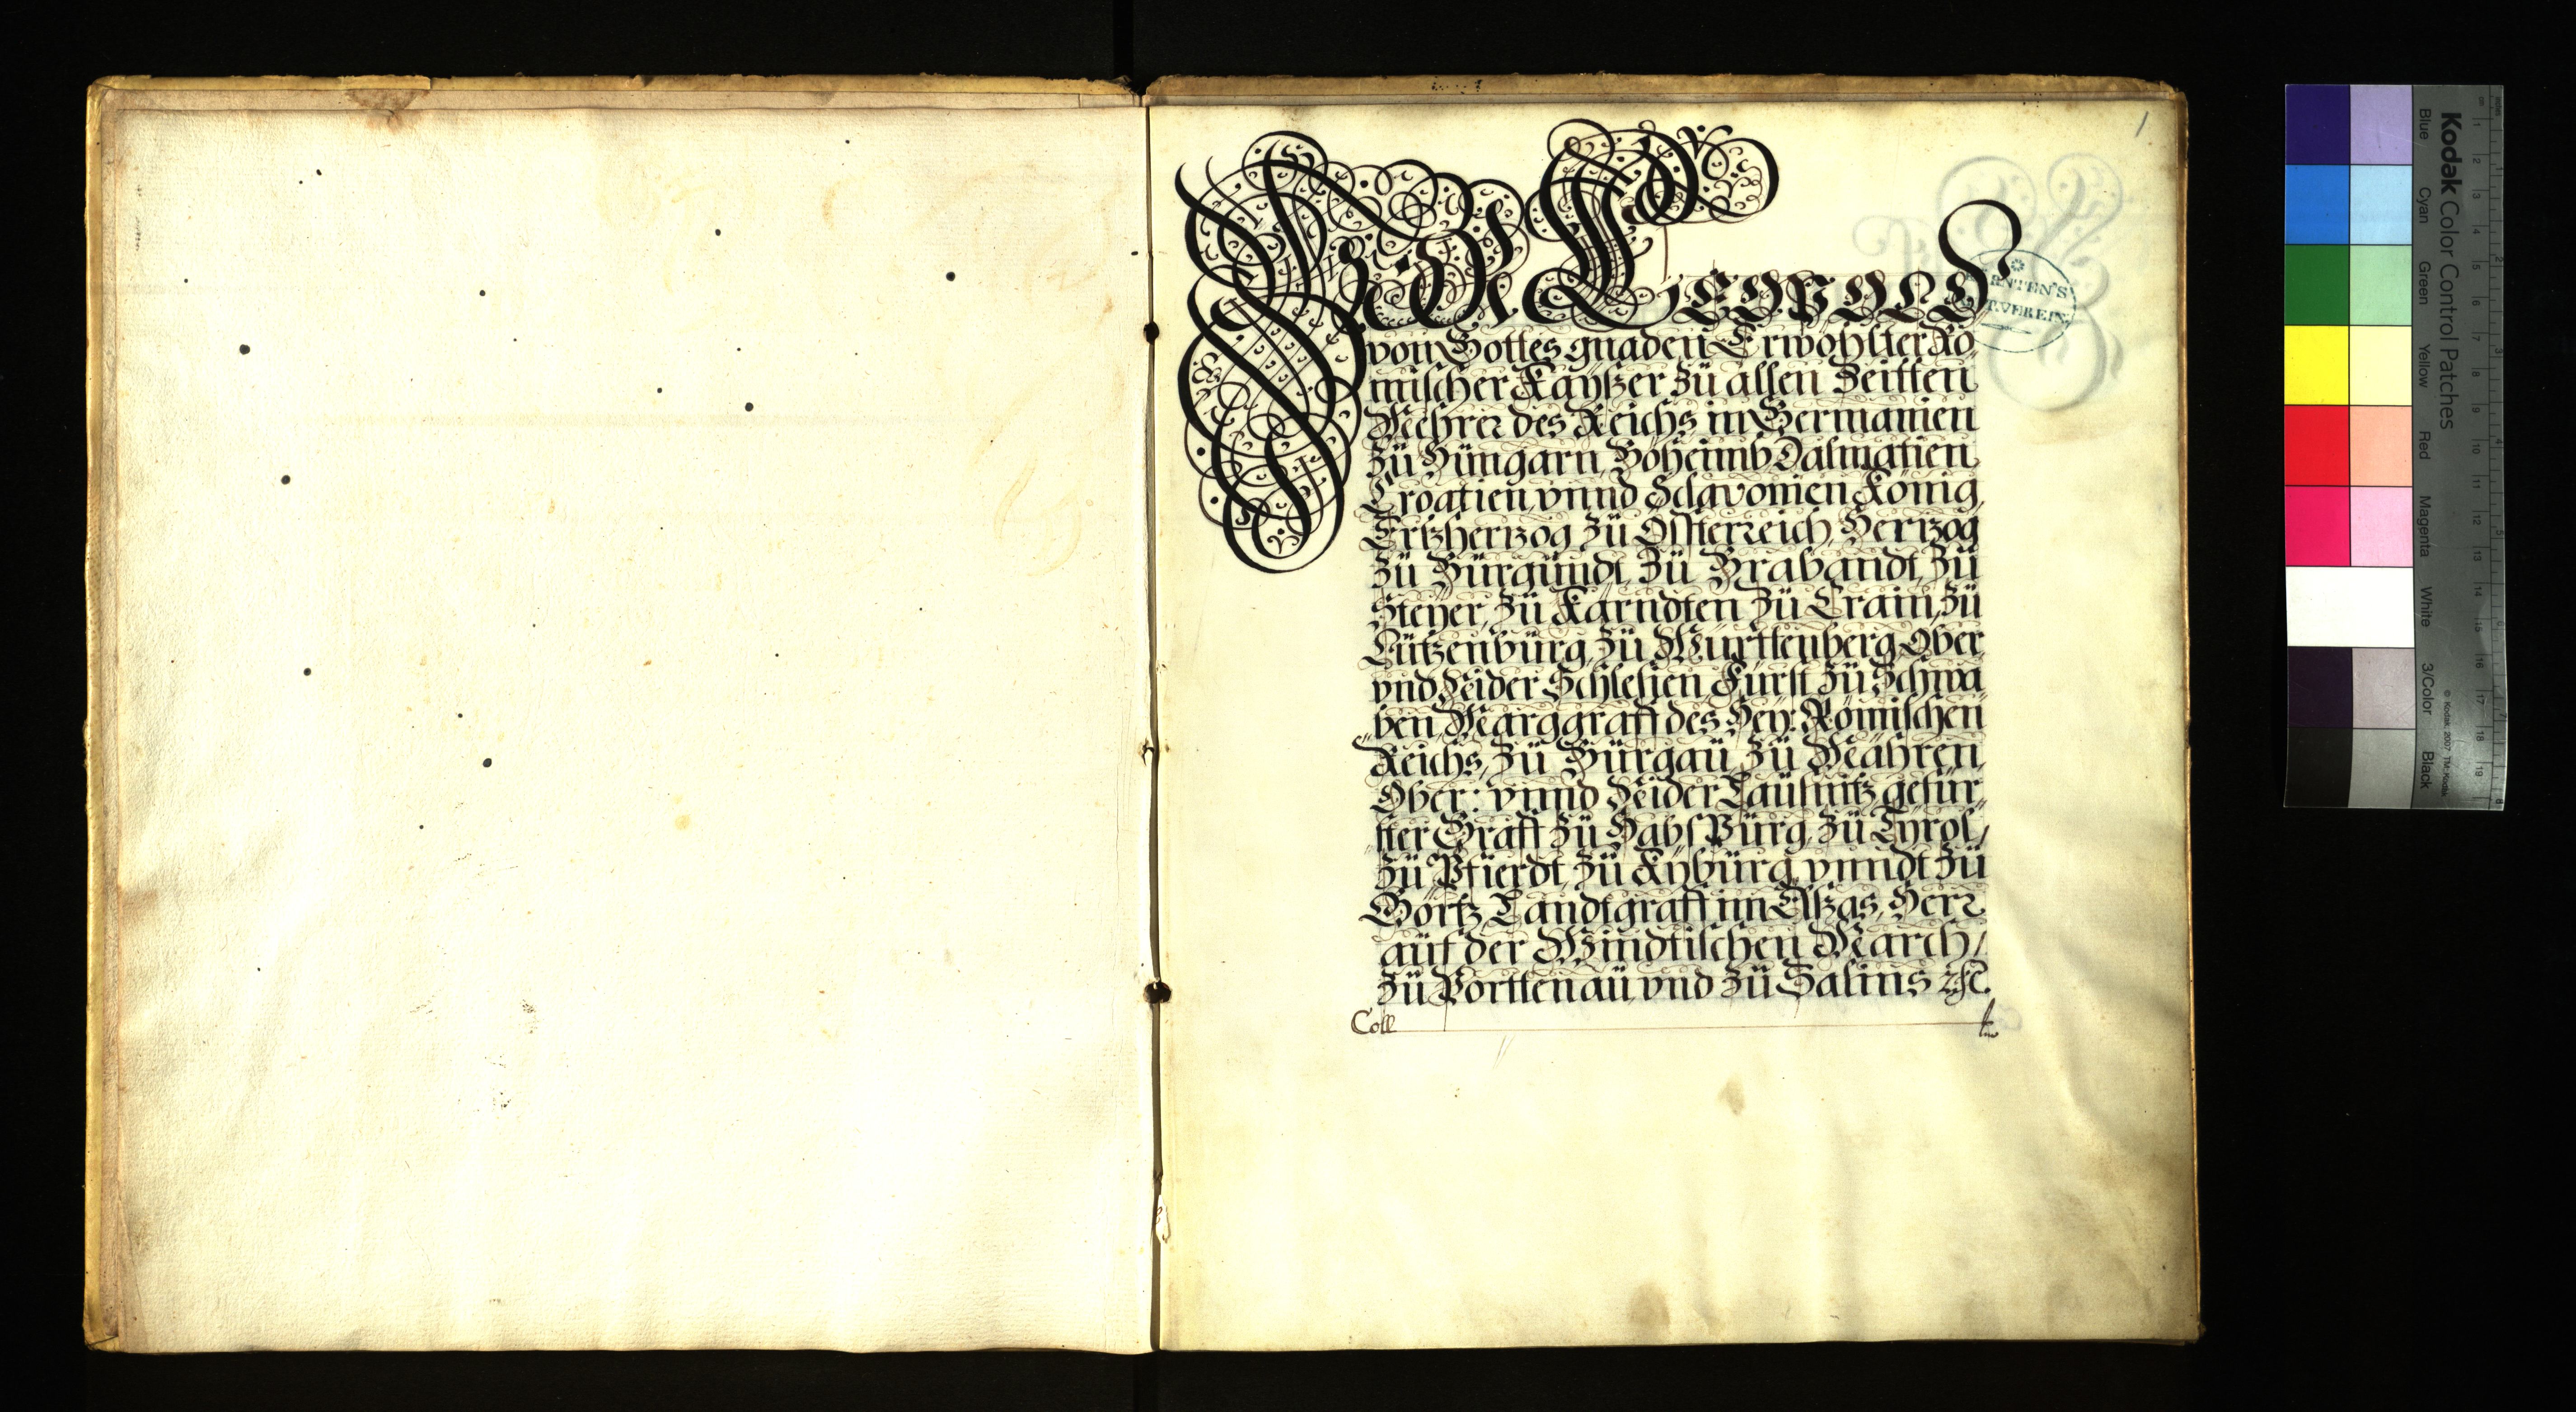 1
Wir Leopold
von Gottes gnaden Erwöhlter Rö-
mischer Kaÿßer zu allen Zeitten
Mehrer des Reichs in Germanien
zu Hungarn, Böheimb Dalmatien,
Croatien, vnnd Sclavonien König,
Ertzhertzog zu Össterreich, Hertzog
zu Burgundt, zu Brabandt, zu
Steÿer, zu Kärndten zu Crain, zu
Lützenburg, zu Württenberg Ober
vnd Nider Schlesien, Fürst zu Schwa-
ben, Marggraff des Heÿ: Römischen
Reichs, zu Burgau, zu Mähren,
Ober: vnnd Nider Laüsnitz gefür-
ster Graff zu HabsPurg, zu Tÿrol /
zu Pfierdt, zu Kÿburg, vnndt zu
Görtz, Landtgraff im Elßas, Herr
auf der Windtischen March /
zu Porttenau, vnd zu Salins
Coll
RNTEN'S
T.VEREIN
Kodak Color Control Patches
Blue Cyan Green Yellow Red Magenta White 3/Color Black
© Kodak, 2007 TM: Kodak